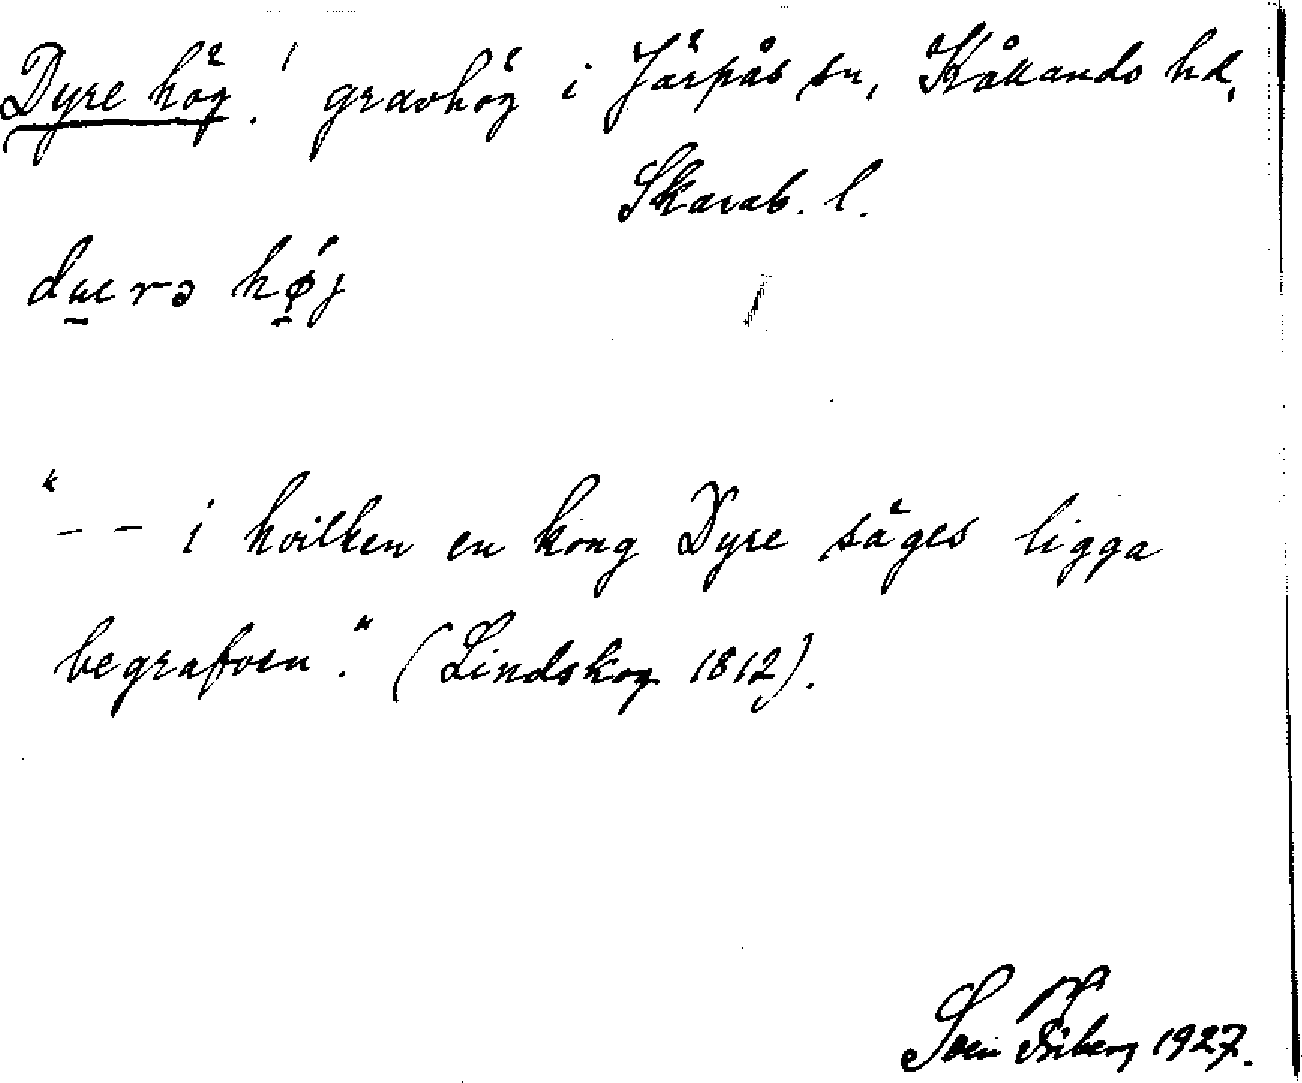 Dyre hög! gravhög i Järpås sn, Kållands hd,
Skarab. l.
høj
"– – i hvilken en kong Dyre säges ligga
begrafven." (Lindskog 1812).
Sven Friberg 1927.